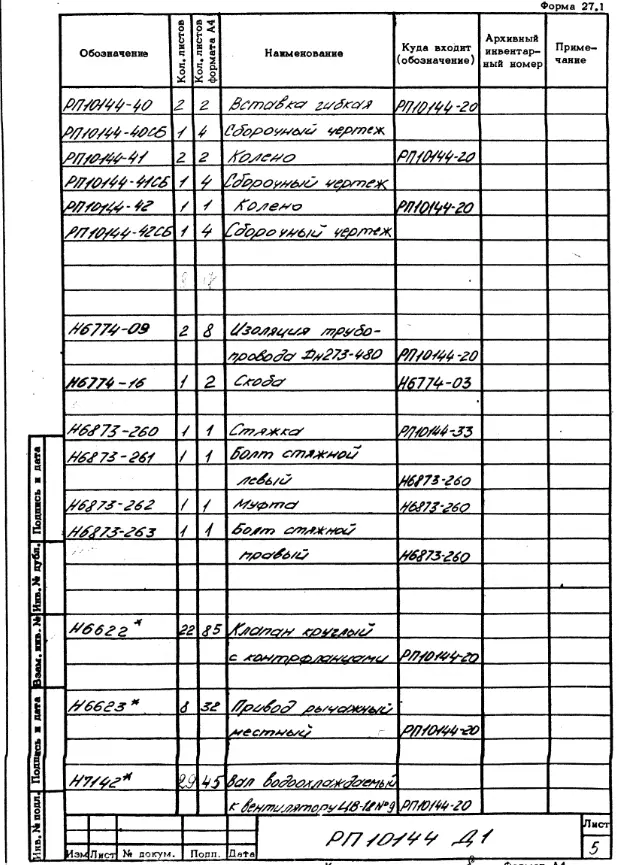 Форма 27.1
Обозначение Кол. листов Кол. листов формата А4 Наименование Куда входит (обозначение) Архивный инвентар-ный номер Приме-чание
РП10144-40 2 2 Вставка гибкая РП10144-20
РП10144-40СБ 1 4 Сборочный чертеж
РП10144-41 2 2 Колено РП10144-20
РП10144-41СБ 1 4 Сборочный чертеж
РП10144-42 1 1 Колено РП10144-20
РП10144-42СБ 1 4 Сборочный чертеж
Н6774-09 2 8 Изоляция трубо-
провода Дн273-480 РП10144-20
Н6774-16 1 2 Скоба Н6774-03
Н6873-260 1 1 Стяжка РП10144-33
Н6873-261 1 1 Болт стяжной
левый Н6873-260
Н6873-262 1 1 Муфта Н6873-260
Н6873-263 1 1 Болт стяжной
правый Н6873-260
Н6622* 22 85 Клапан круглый
с контрфланцами РП10144-20
Н6623* 8 32 Привод рычажный
местный РП10144-20
Н7142* 29 45 Вал водоохлаждаемый
к вентилятору ЦВ-18 №9 РП10144-20
Подпись и дата
Инв. № дубл.
Взам. инв. №
Подпись и дата
Инв. № подл.
Изм Лист № докум. Подп. Дата
РП 10144 Д1
Лист
5